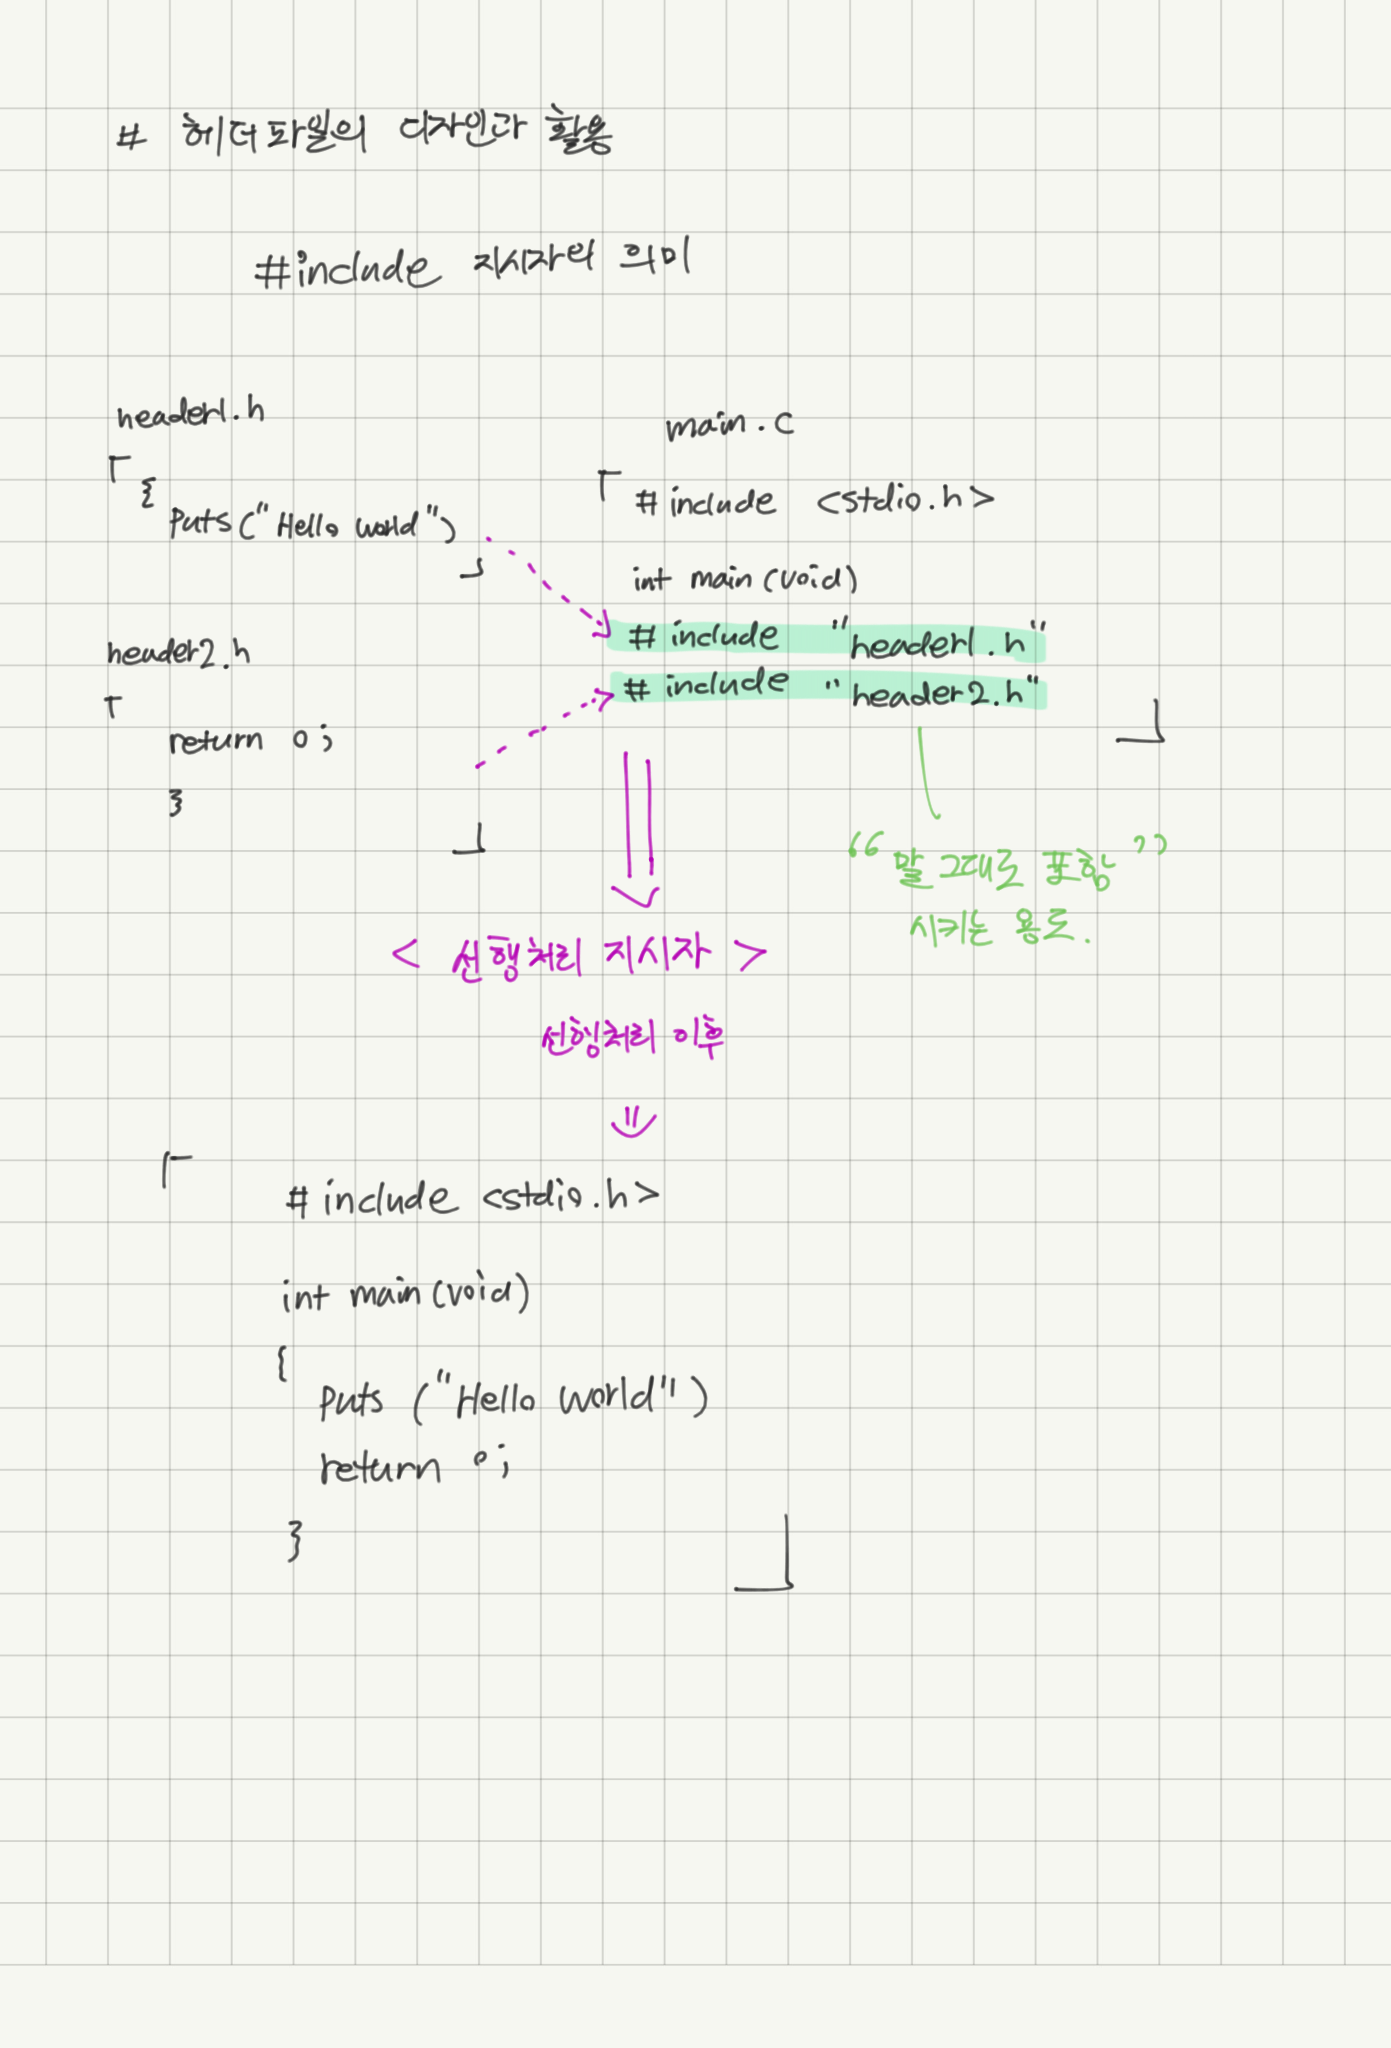 # 헤더파일의 디자인과 활용
#include 지시자의 의미
header1.h
{
puts("Hello world")
header2.h
return 0;
}
main.c
#include <stdio.h>
int main(void)
#include "header1.h"
#include "header2.h"
"말 그대로 포함"
시키는 용도.
< 선행처리 지시자 >
선행처리 이후
#include <stdio.h>
int main(void)
{
puts ("Hello world")
return 0;
}